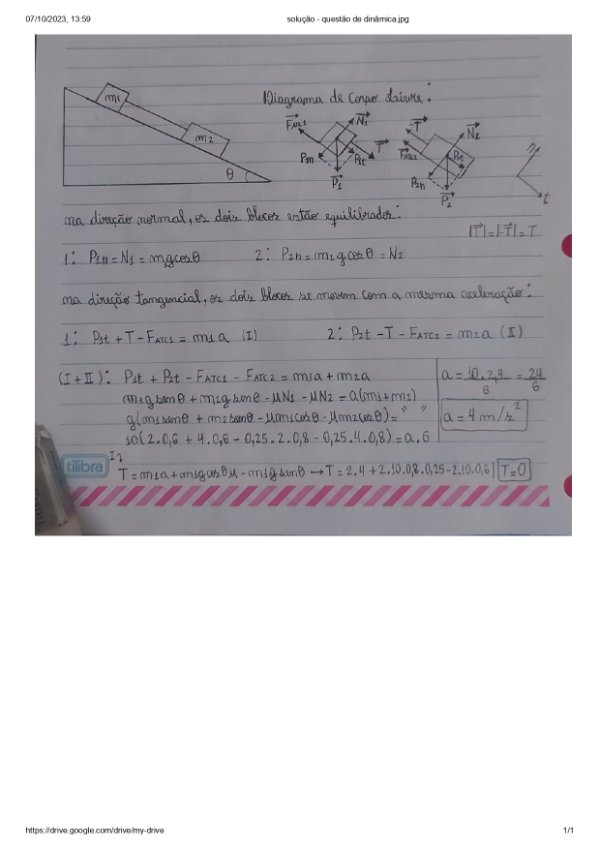 07/10/2023, 13:59
solução - questão de dinâmica.jpg
m1
m2
θ
Diagrama de Corpo Livre:
FATC1
N1
P1n
P1t
T
P1
-T
N2
FATC2
P1t
P2n
P2
n
t
na direção normal, os dois blocos estão equilibrados:
|T|=|-T|=T
1: P1n = N1 = m1gcosθ
2: P2n = m2gcosθ = N2
na direção tangencial, os dois blocos se movem com a mesma aceleração:
1: P1t + T - FATC1 = m1a (I)
2: P2t - T - FATC2 = m2a (II)
(I+II): P1t + P2t - FATC1 - FATC2 = m1a + m2a
m1g senθ + m2g senθ - μN1 - μN2 = a(m1+m2)
g(m1senθ + m2senθ - μm1cosθ - μm2cosθ) = " "
10(2.0,6 + 4.0,6 - 0,25.2.0,8 - 0,25.4.0,8) = a.6
a = 10.2,4/6 = 24/6
a = 4 m/s²
tilibra
I
T = m1a + m1gcosθμ - m1g senθ → T = 2.4 + 2.10.0,8.0,25 - 2.10.0,6 | T=0
https://drive.google.com/drive/my-drive
1/1